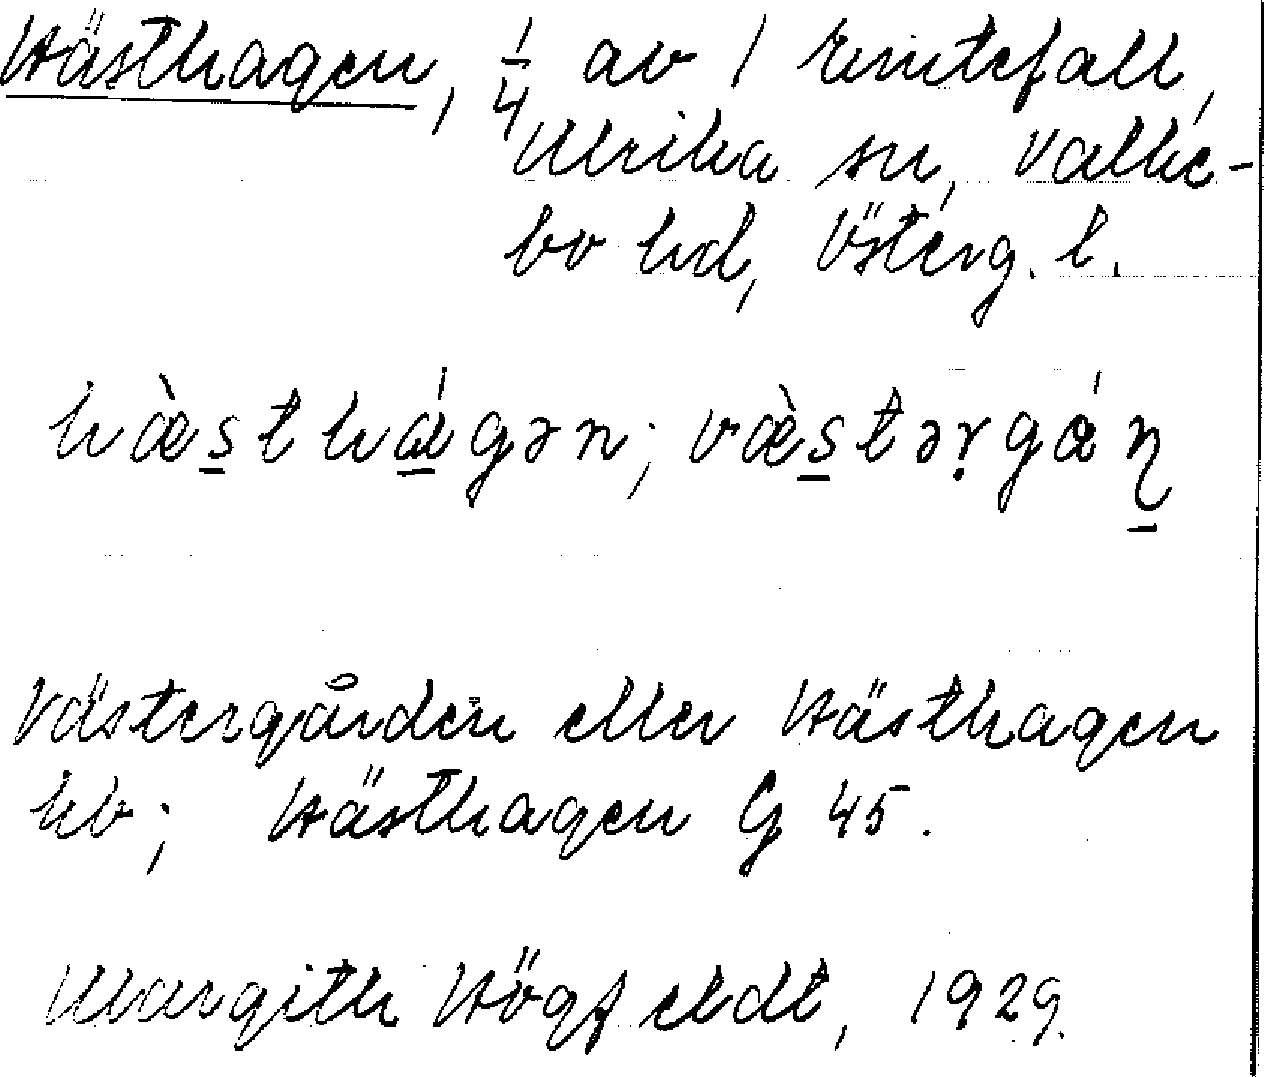 Hästhagen, 1/4 av 1 Emtefall,
Ulrika sn, Valke-
bo hd, Österg. l.
hæ̀s̲thá̲gən; væ̀s̲tərgáɳ̲
Västergården eller Hästhagen
hb; Hästhagen G 45.
Margith Högfeldt, 1929.